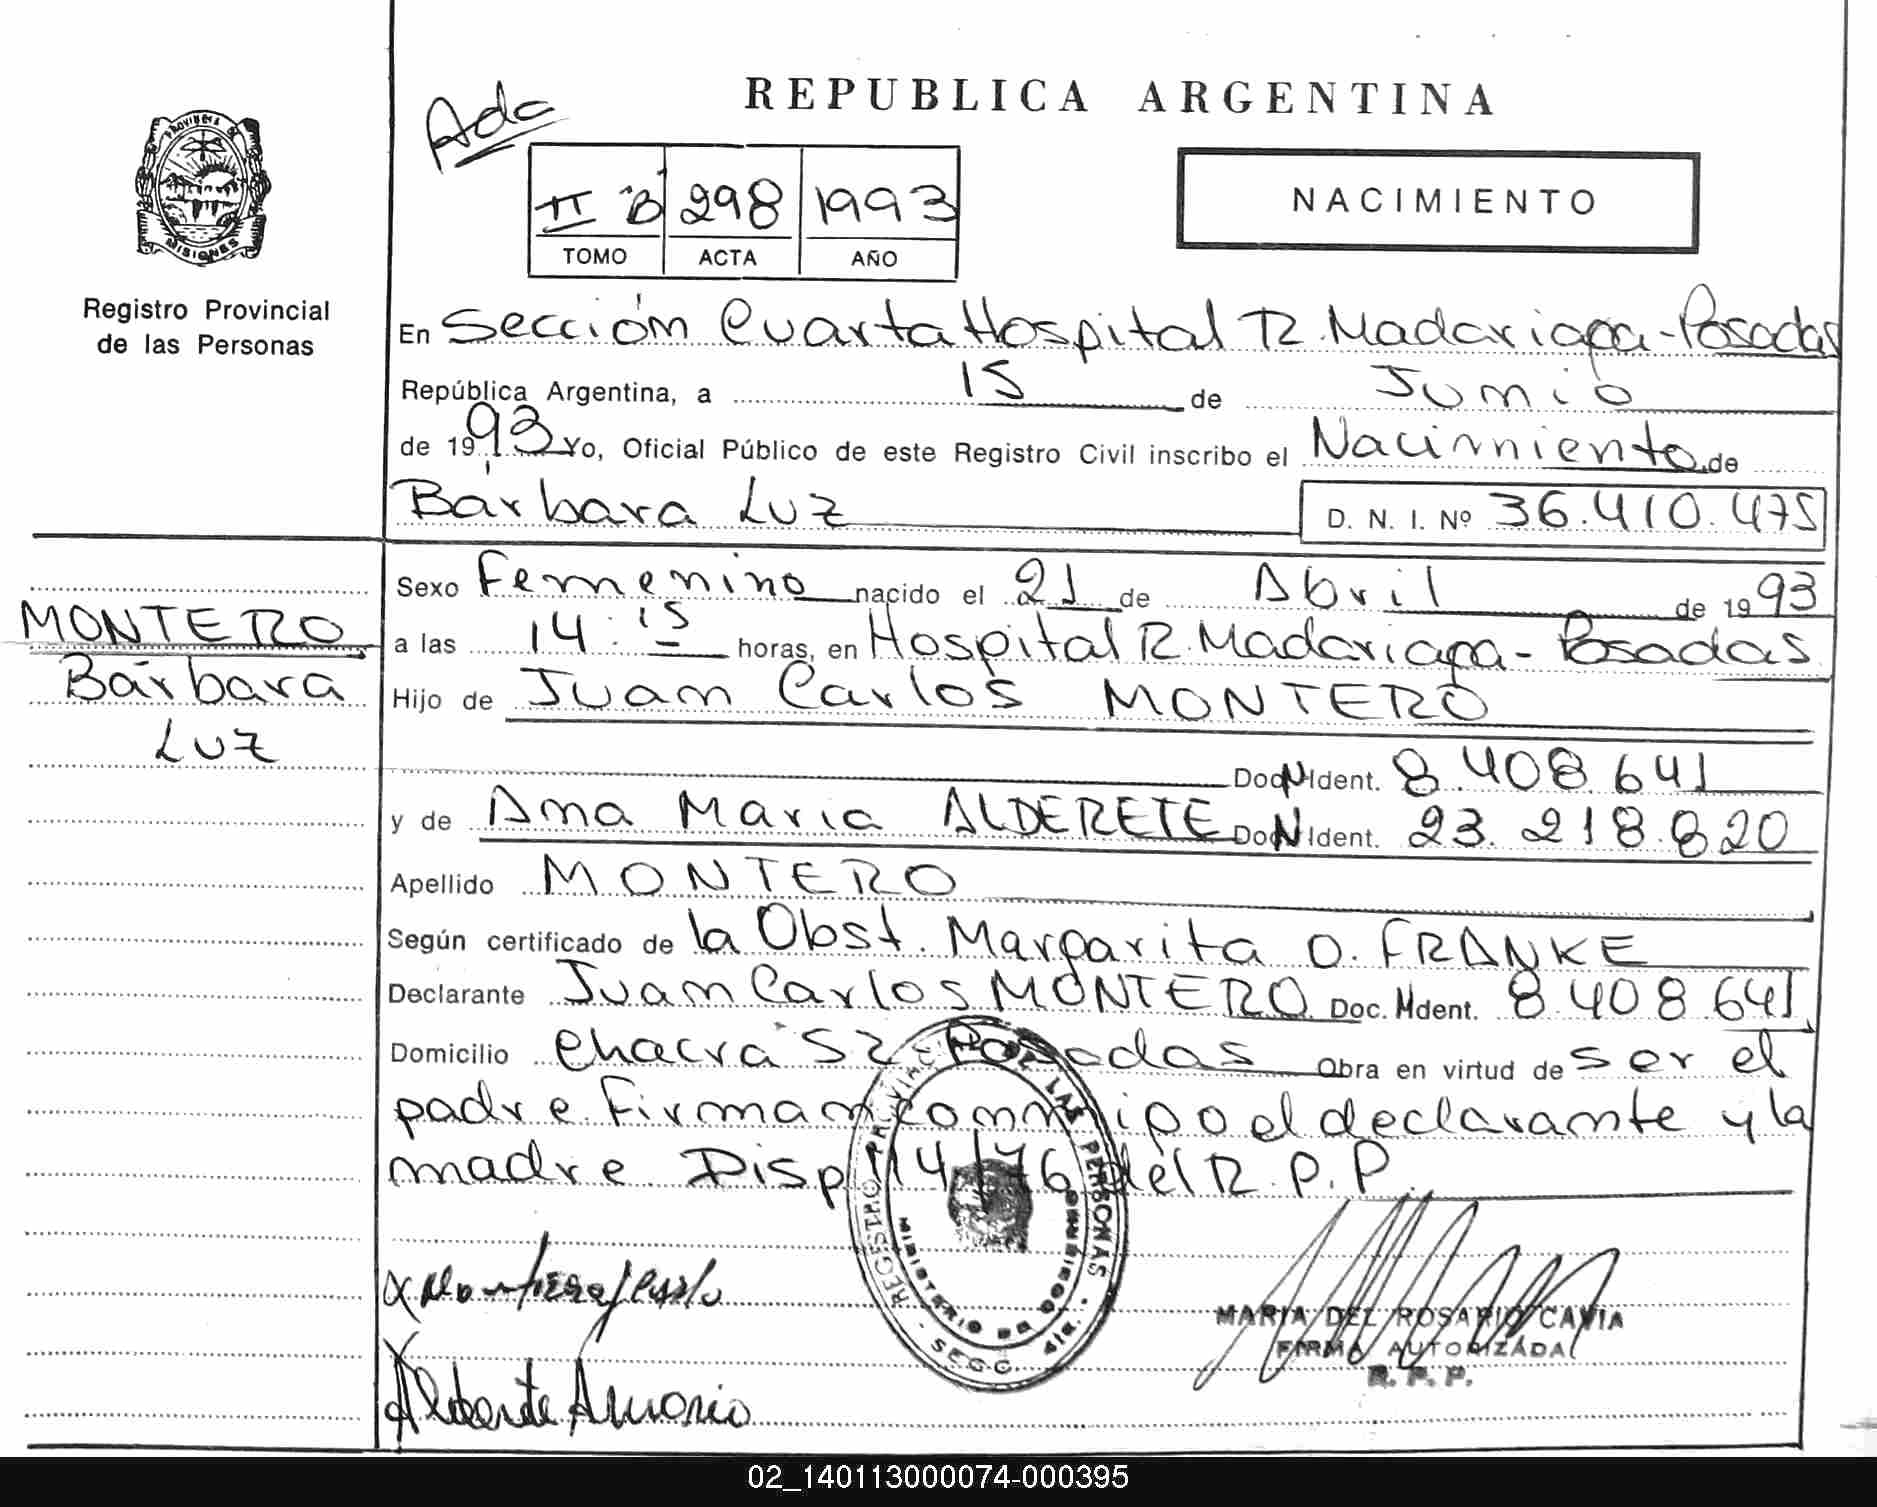 REPUBLICA ARGENTINA
Ada
II "B" 298 1993
TOMO ACTA AÑO
NACIMIENTO
PROVINCIA DE
MISIONES
Registro Provincial
de las Personas
En Sección Cuarta Hospital R. Madariaga - Posadas
República Argentina, a 15 de Junio
de 1993 Yo, Oficial Público de este Registro Civil inscribo el Nacimiento de
Bárbara Luz D. N. I. Nº 36.410.475
Sexo Femenino nacido el 21 de Abril de 1993
MONTERO
Bárbara
Luz
a las 14:15 horas, en Hospital R. Madariaga - Posadas
Hijo de Juan Carlos MONTERO
Doc. N Ident. 8.408.641
y de Ana Maria ALDERETE Doc. N Ident. 23.218.820
Apellido MONTERO
Según certificado de la Obst. Margarita O. FRANKE
Declarante Juan Carlos MONTERO Doc. N Ident. 8.408.641
Domicilio Chacra 52 Posadas Obra en virtud de ser el
padre. Firman conmigo el declarante y la
madre. Disp. 114/76 del R.P.P.
REGISTRO PROVINCIAL DE LAS PERSONAS
MINISTERIO DE GOBIERNO
SECC. 4ta.
MARIA DEL ROSARIO CAVIA
FIRMA AUTORIZADA
R. P. P.
02_140113000074-000395